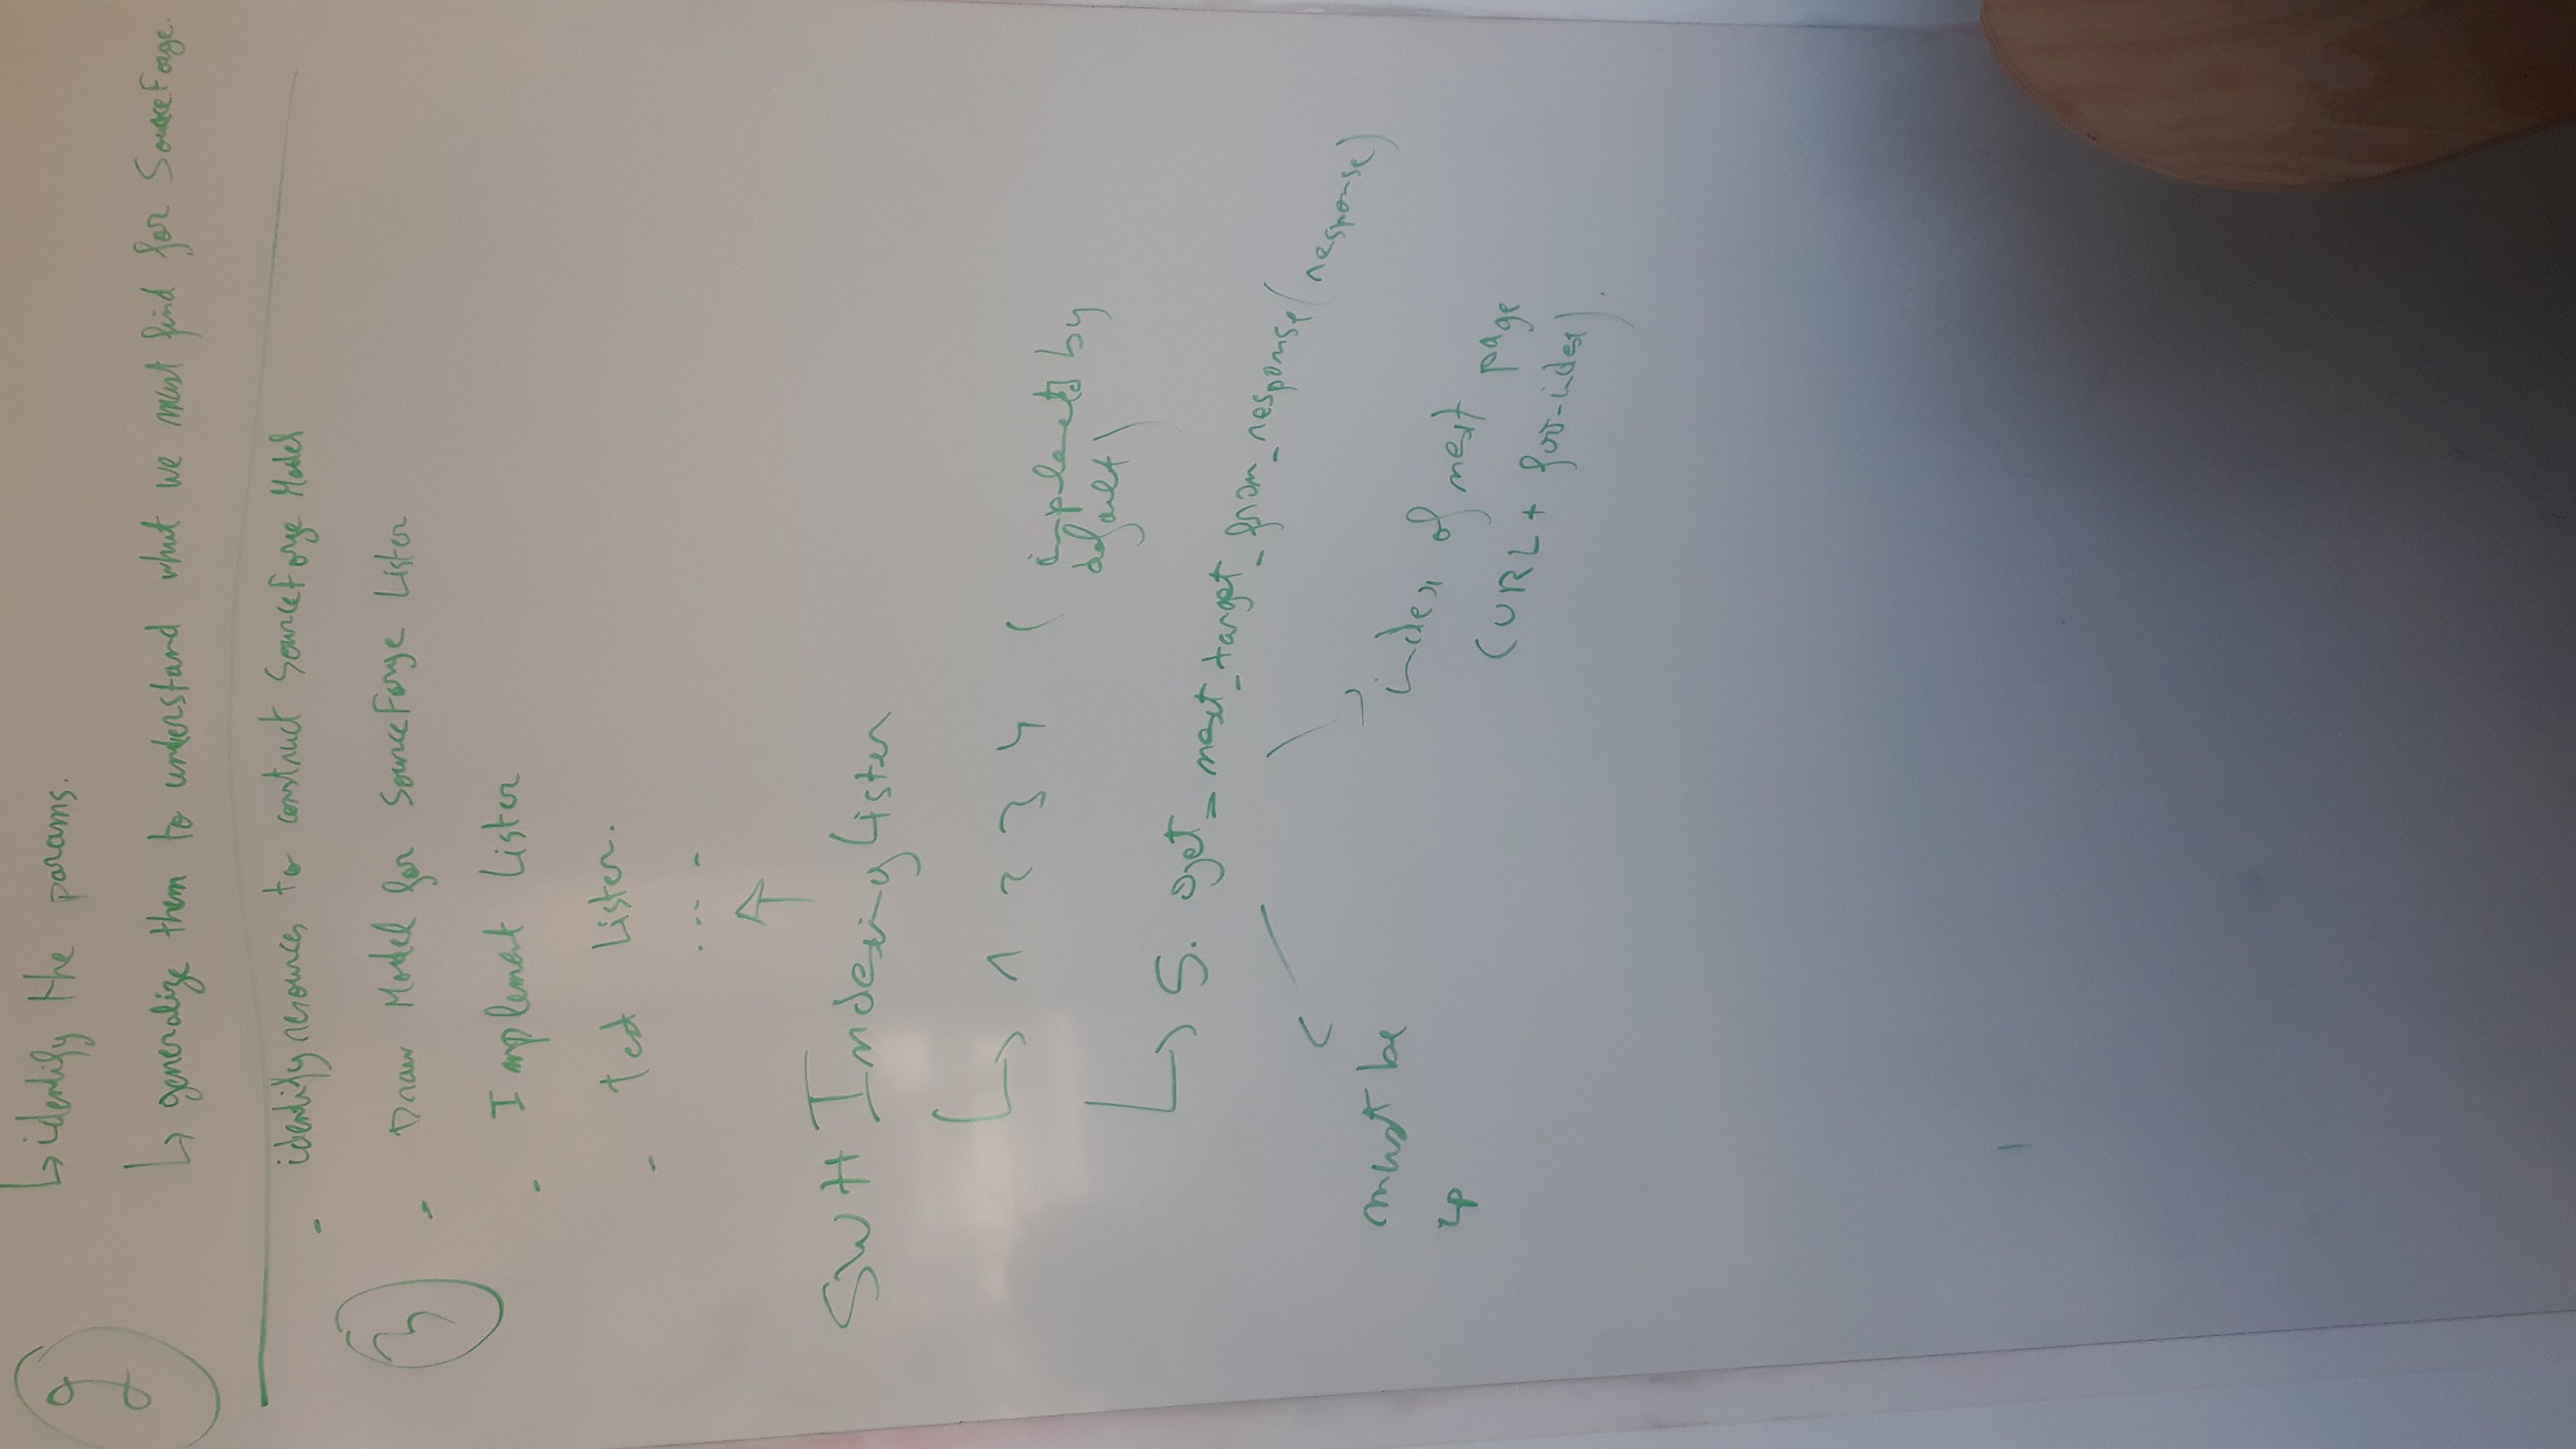 2
↳ identify the params.
↳ generalize them to understand what we must find for SourceForge.
- identify resources to construct SourceForge Model
3
- Draw Model for SourceForge Lister
- Implement Lister
- test Lister.
.... 
SWH Indexing Lister
↳ 1 2 3 4 (implements by
default)
↳ 5. get_next_target_from_response(response)
must be
index of next page
(URL + foo-index).